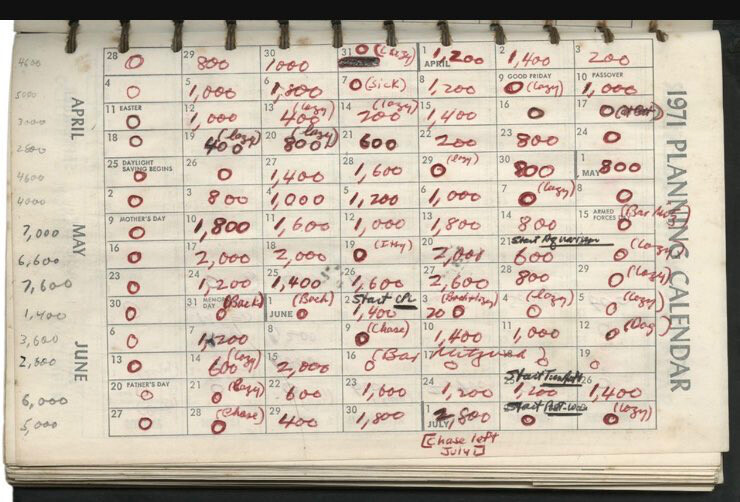 28 0 29 800 30 1000 31 0 (Lazy) 1 APRIL 1,200 2 1,400 3 200
4600
4 0 5 1,000 6 1,800 7 0 (Sick) 8 1,200 9 GOOD FRIDAY 0 (lazy) 10 PASSOVER 1,000
5000
11 EASTER 0 12 1,000 13 (lazy) 400 14 (lazy) 200 15 1,400 16 0 17 0
3000
18 0 19 (lazy) 400 20 (lazy) 800 21 600 22 200 23 800 24 0
2800
25 DAYLIGHT SAVING BEGINS 0 26 0 27 1,400 28 1,600 29 0 (lazy) 30 800 1 MAY 800
4600
2 0 3 800 4 1,000 5 1,200 6 1,000 7 0 (lazy) 8 0
4000
9 MOTHER'S DAY 0 10 1,800 11 1,600 12 1,000 13 1,800 14 800 15 ARMED FORCES 0
7,000
16 0 17 2,000 18 2,000 19 0 20 2,000 21 Start Aquarium 600 22 0 (lazy)
6,600
23 0 24 1,200 25 1,400 26 1,600 27 2,600 28 800 29 0 (Lazy)
7,600
30 0 31 MEMORIAL DAY 0 (Back) 1 JUNE 0 (Back) 2 Start 1,400 3 4 0 (lazy) 5 0 (lazy)
1,400
6 0 7 1,200 8 0 9 0 (Chase) 10 1,400 11 1,000 12 0
3,600
13 0 14 (lazy) 600 15 2,000 16 0 (Bar 17 Mitzvah 18 0 19 0
20 FATHER'S DAY 0 21 0 (lazy) 22 600 23 1,000 24 1,200 25 Start 1,200 26 1,400
6,000
27 0 28 0 (Chase) 29 400 30 1,800 1 JULY 2,800 Start 0 0 (lazy)
5,000
[Chase left
July 1]
APRIL
MAY
JUNE
1971 PLANNING CALENDAR